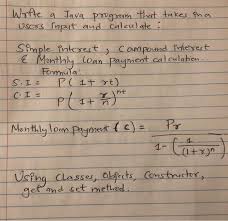 Write a Java program that takes in a
users input and calculate :
Simple interest , Compound interest
& Monthly loan payment calculation.
Formula:
S.I = P(1+rt)
C.I = P(1+r/n)^nt
Monthly loan payment (c) = Pr / 1-(1/(1+r)^n)
Using classes, Objects, Constructor,
get and set method.